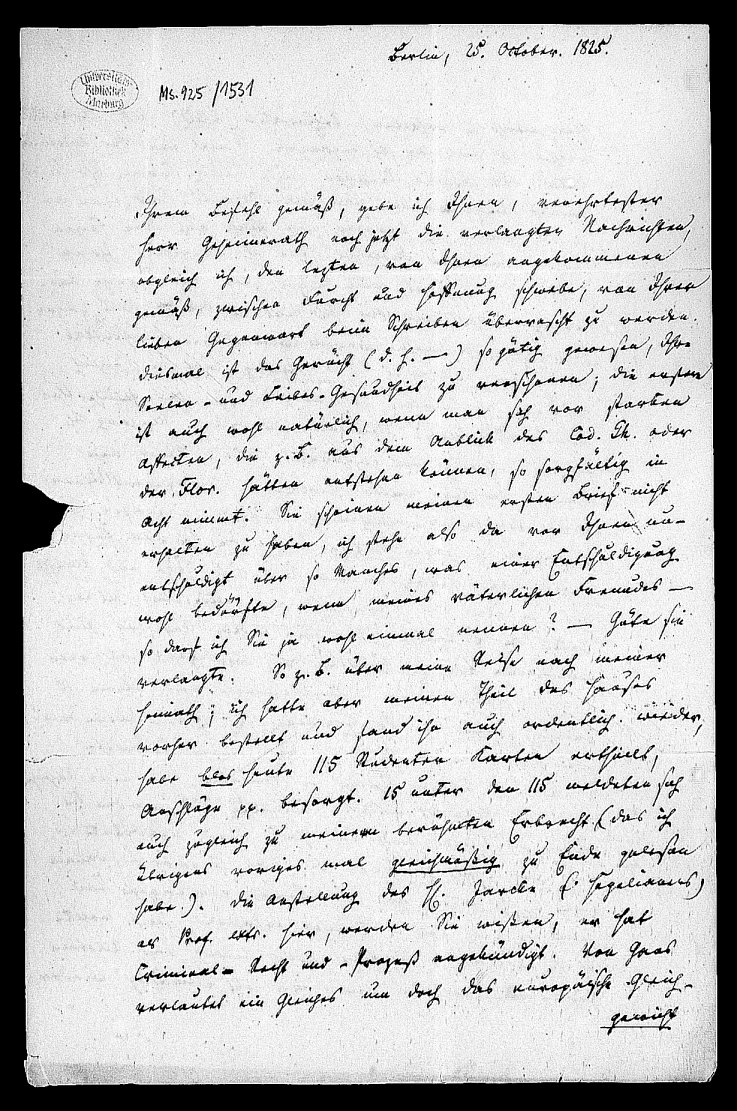 Berlin, 25. October. 1825.
Universitäts-
Bibliothek
Marburg
Ms. 925/1531
Ihrem Befehl gemäß, gebe ich Ihnen, verehrtester
Herr Geheimerath noch jetzt die verlangten Nachrichten,
obgleich ich, den lezten, von Ihnen angekommenen
gemäß, zwischen Furcht und Hoffnung schwebe, von Ihrer
lieben Gegenwart beim Schreiben überrascht zu werden.
Diesmal ist das Gerücht (d. h. —) so gütig gewesen, Ihre
Seelen- und Leibes-Gesundheit zu verschonen; die erstere
ist auch wohl natürlich, wenn man sich vor starken
Affecten, die z. B. aus dem Anblick des Cod. Th. oder
der Flor. hätten entstehen können, so sorgfältig in
Acht nimmt. Sie scheinen meinen ersten Brief nicht
erhalten zu haben, ich stehe also da vor Ihnen un-
entschuldigt über so Manches, was einer Entschuldigung
wohl bedürfte, wenn meines väterlichen Freundes —
so darf ich Sie ja wohl einmal nennen? — Güte sie
verlangte. So z. B. über meine Reise nach meiner
Heimath; ich hatte aber meinen Theil des Hauses
vorher bestellt und fand ihn auch ordentlich wieder,
habe blos heute 115 Studenten Karten ertheilt,
Anschläge pp. besorgt. 15 unter den 115 meldeten sich
auch zugleich zu meinem berühmten Erbrecht (das ich
übrigens voriges mal gleichmäßig zu Ende gelesen
habe). Die Anstellung des H. Jarcke (Hegelianers)
als Prof. extr. hier, werden Sie wißen, er hat
Criminal-Recht und -Prozeß angekündigt. Von Gans
verlautet ein Gleiches um doch das europäische Gleich-
gewicht